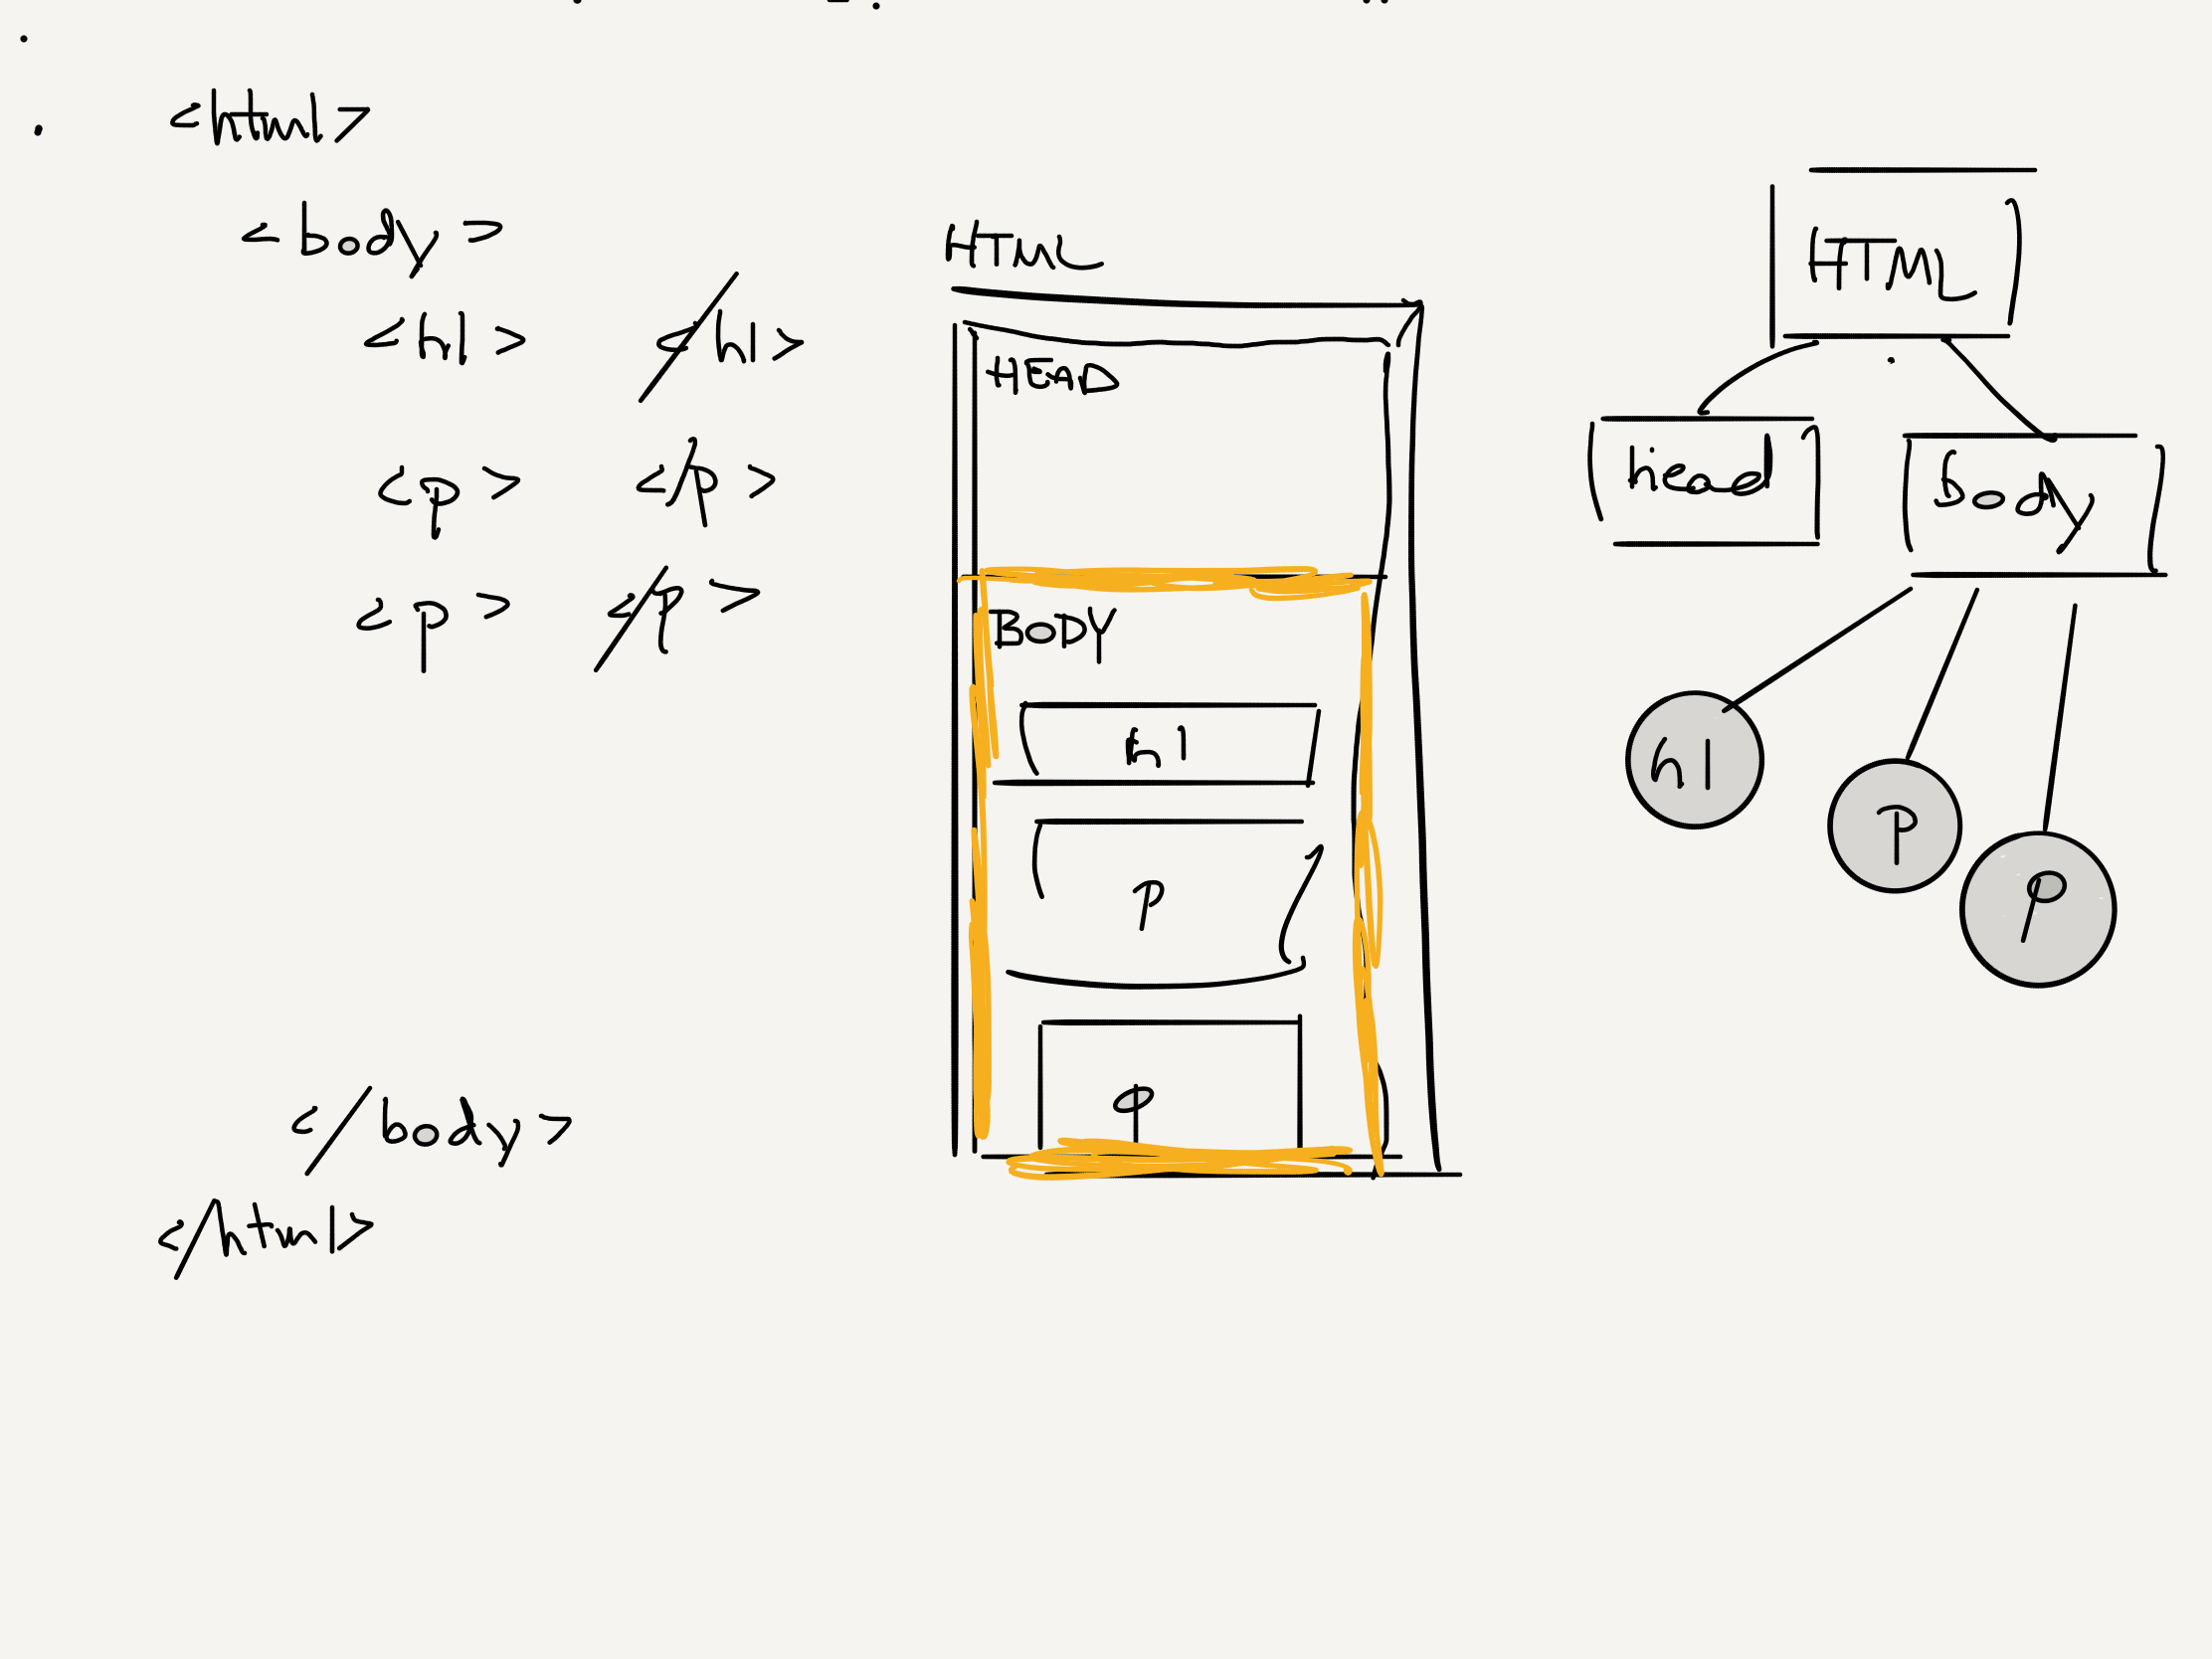 <html>
<body>
<h1> </h1>
<p> </p>
<p> </p>
</body>
</html>
HTML
HEAD
BODY
h1
p
p
HTML
head
body
h1
p
p